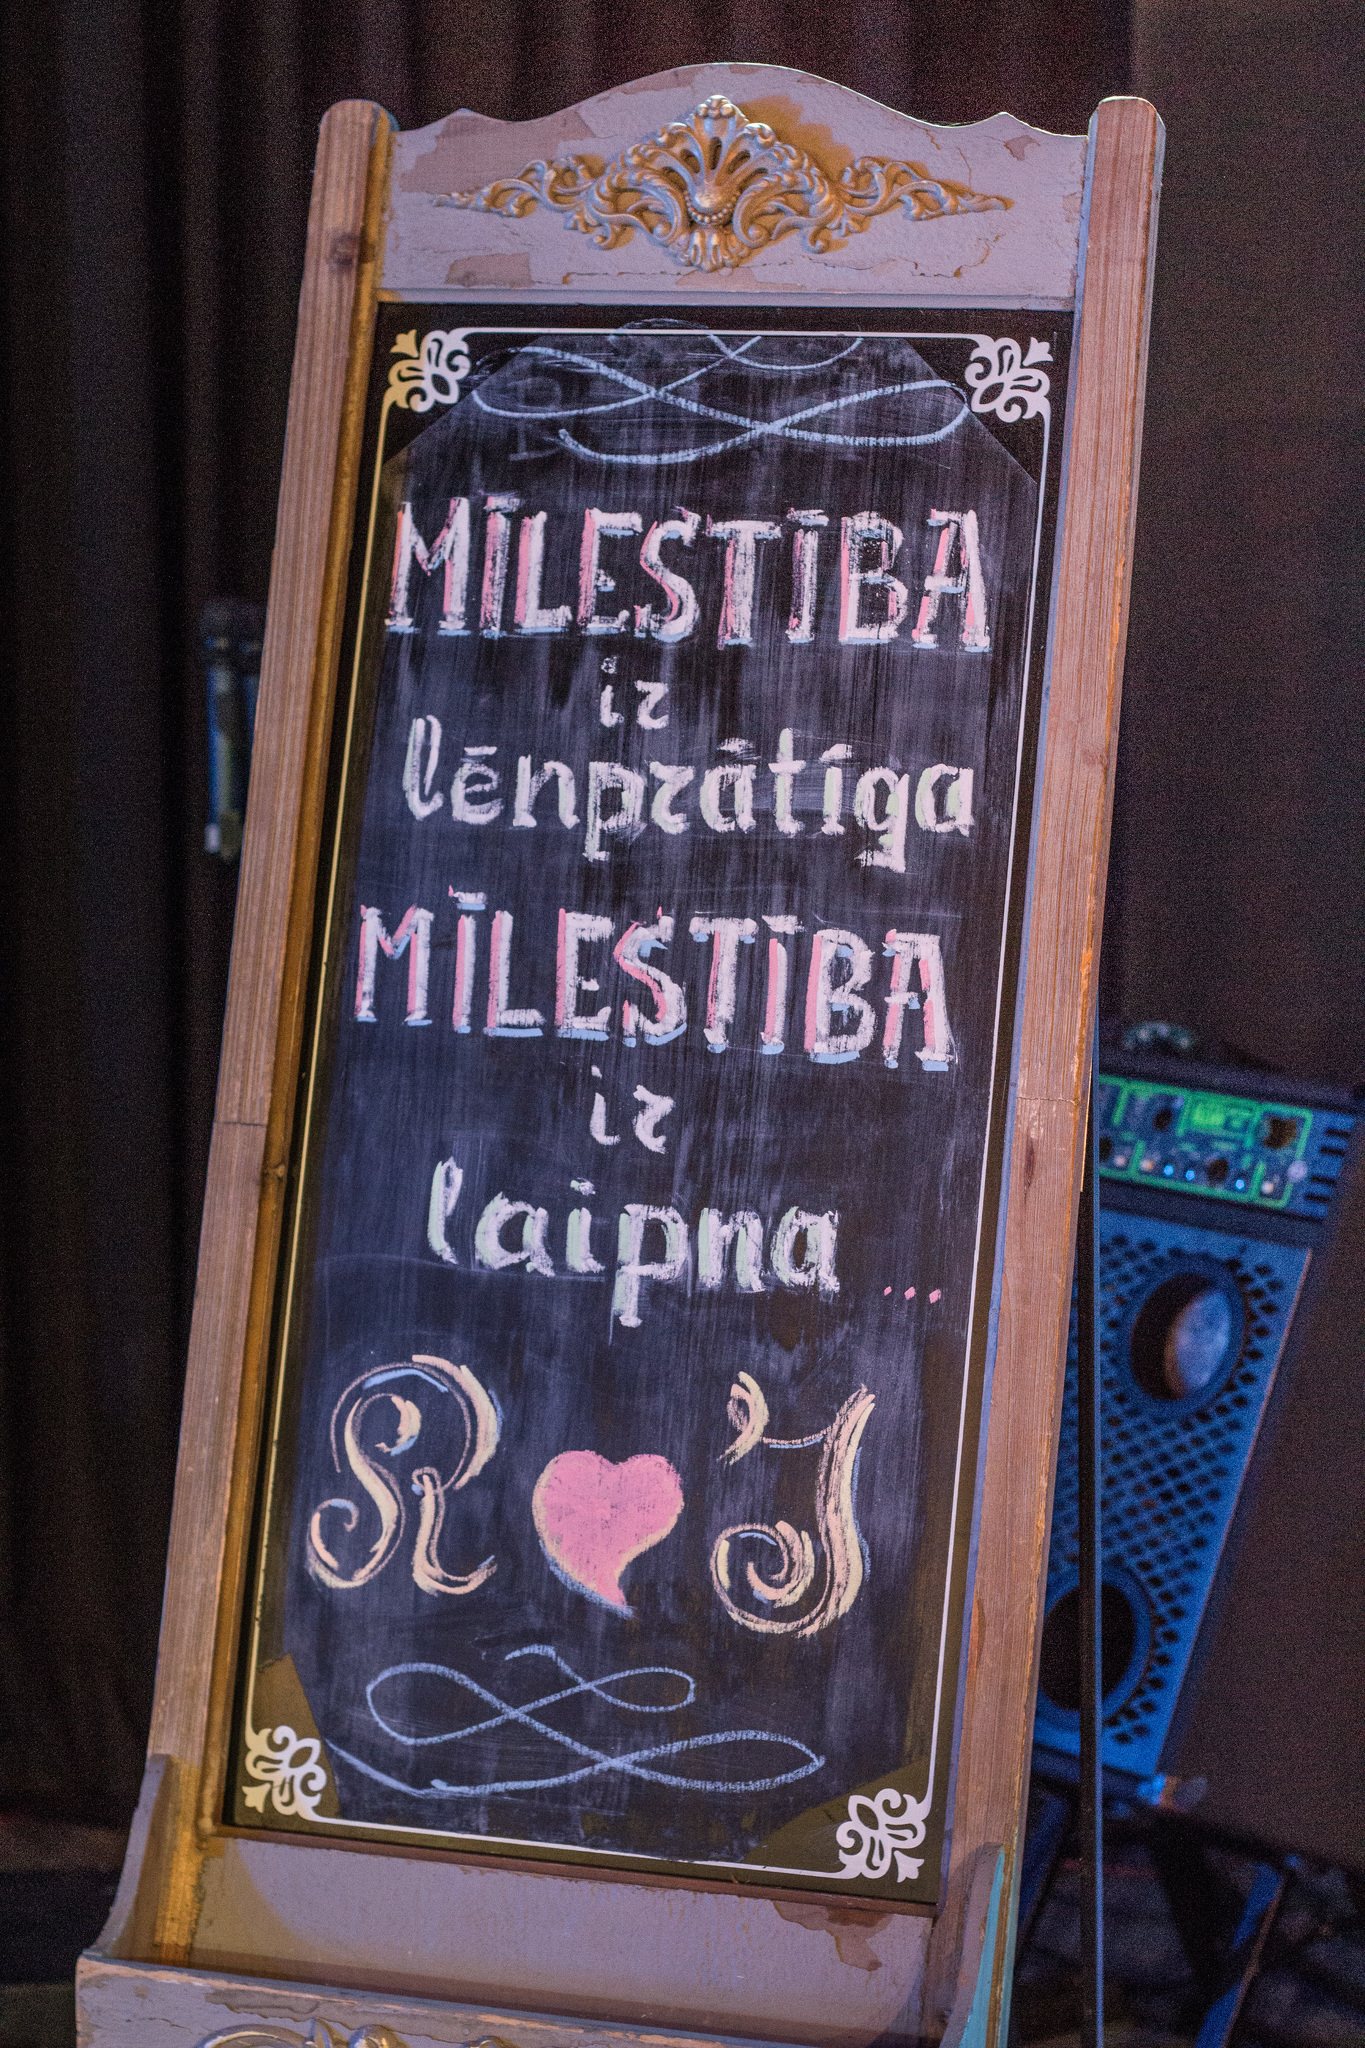 MĪLESTĪBA
ir
lēnprātīga
MĪLESTĪBA
ir
laipna...
R J